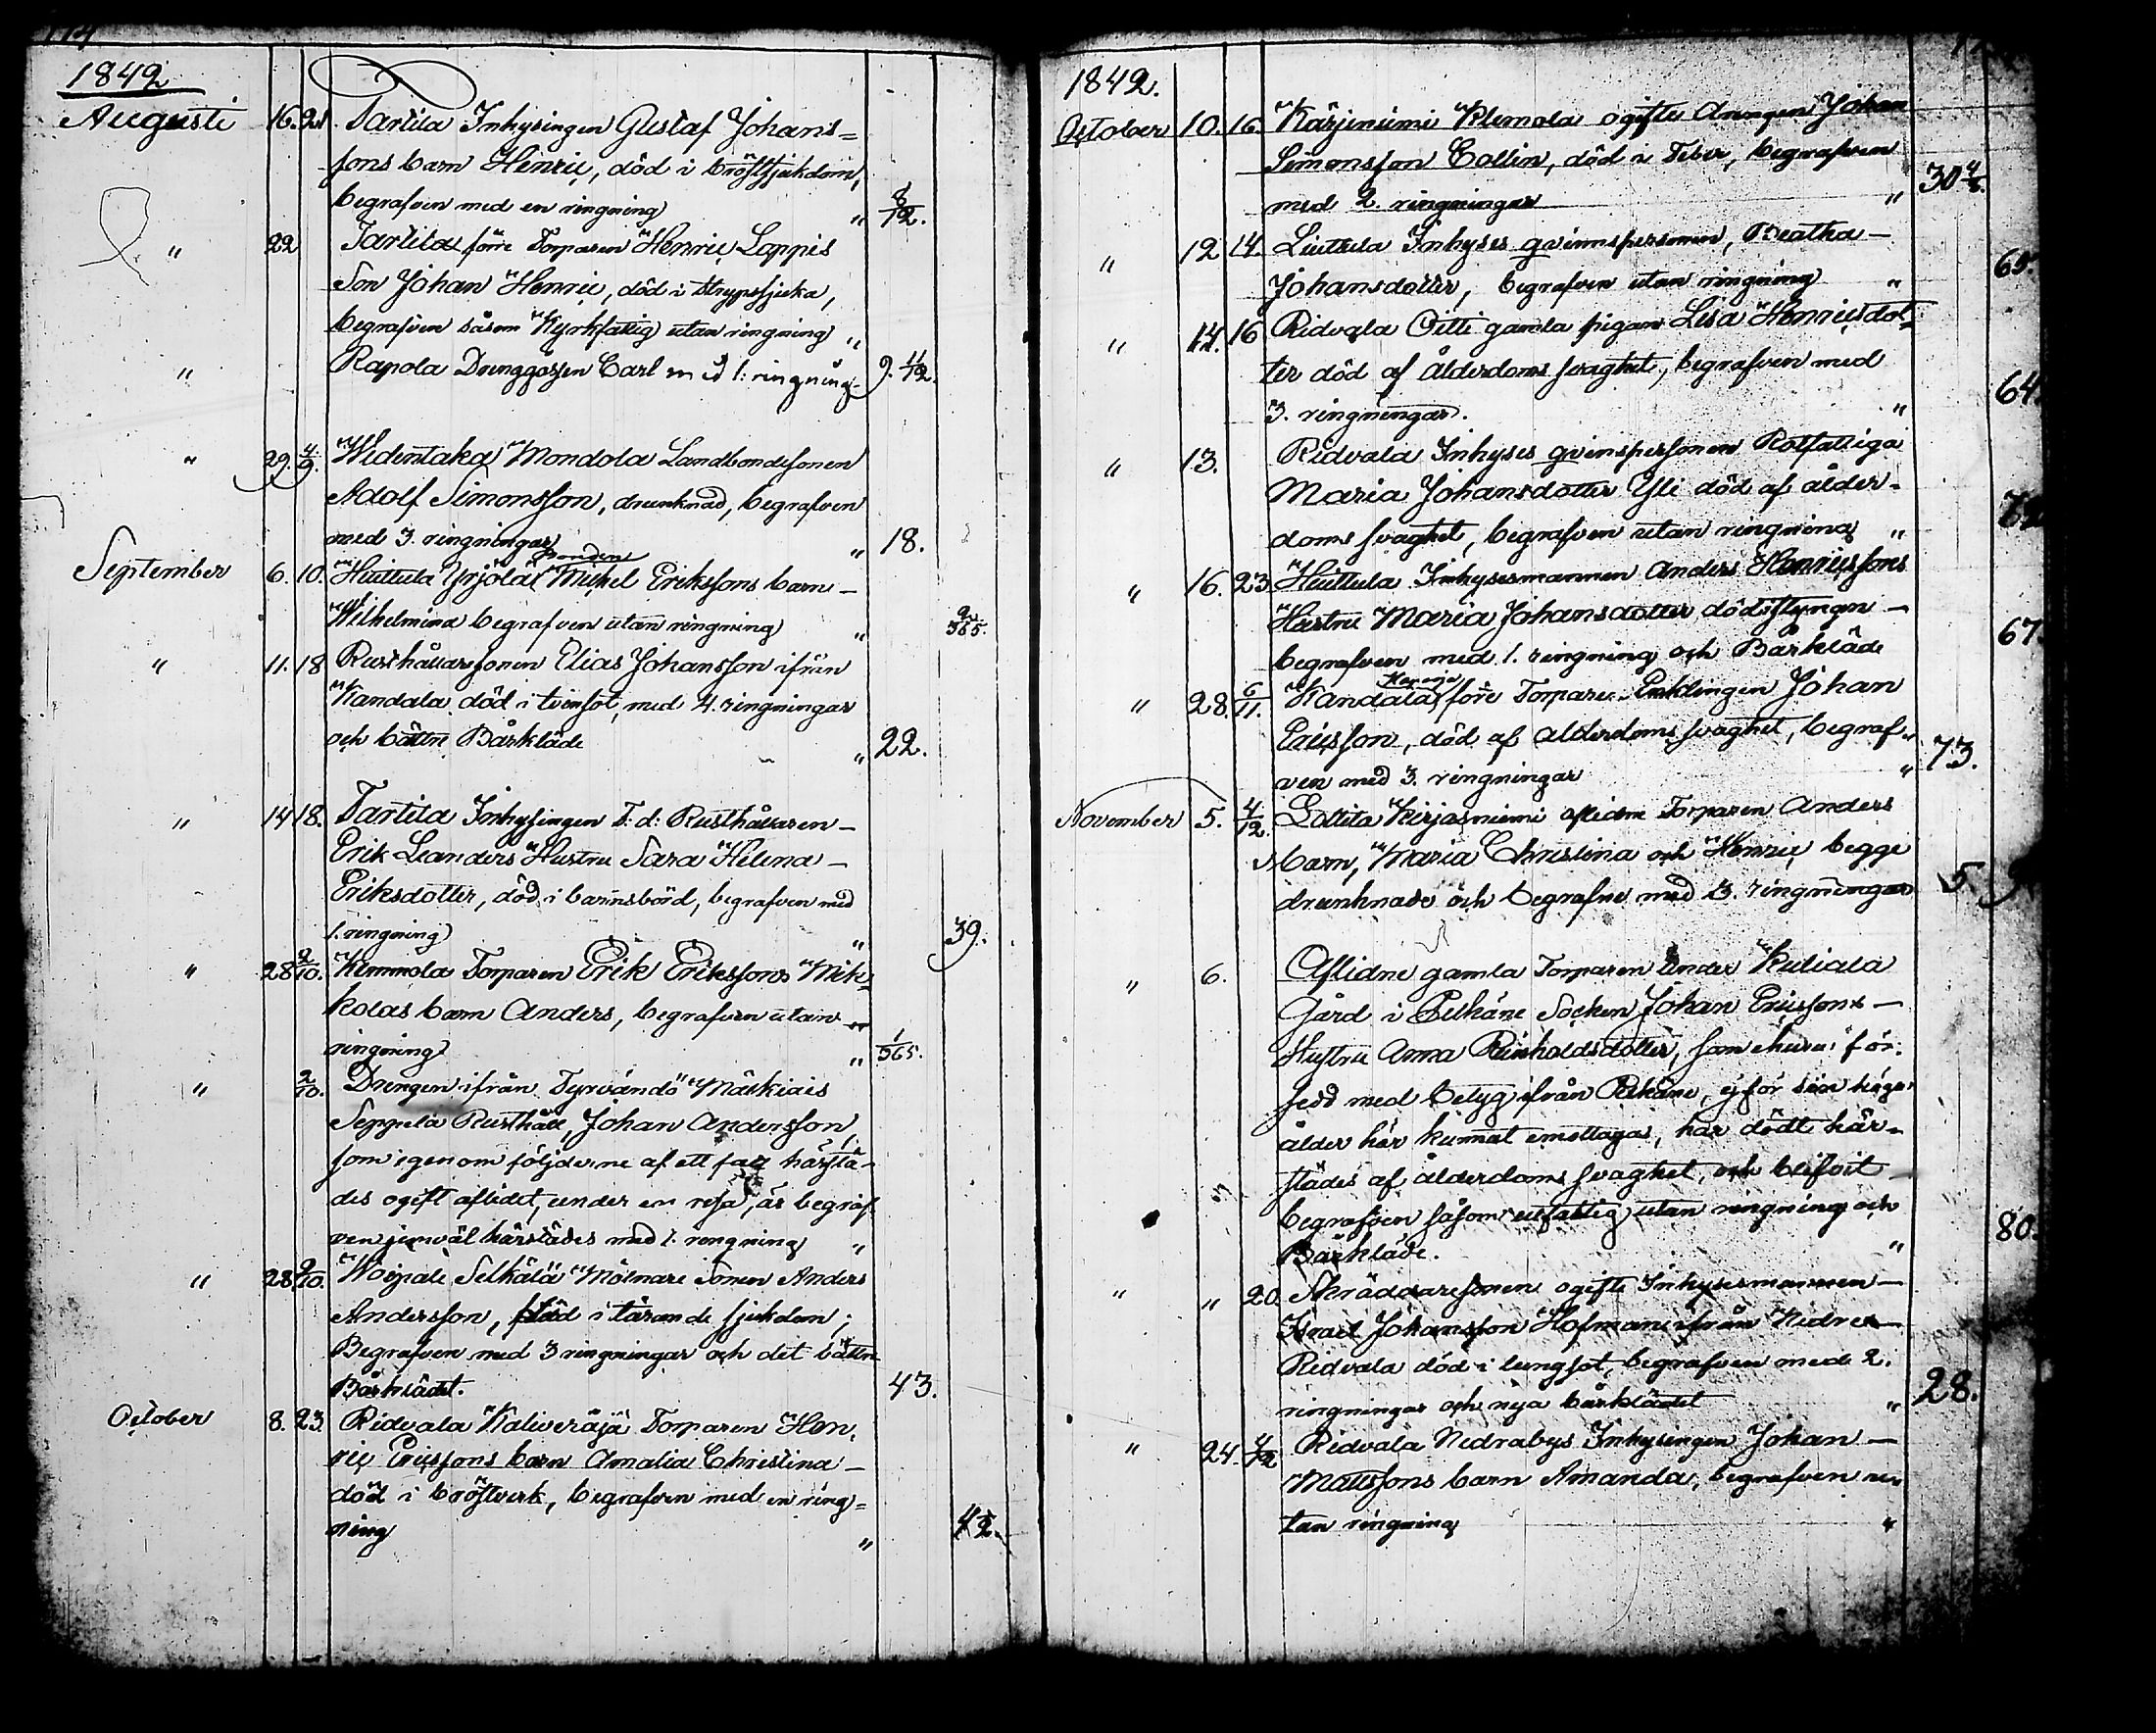 1842
Augusti 16. 21. Tarttila Inhysingen Gustaf Johans=
sons barn Henric, död i bröstsjukdom,
begrafven med en ringning " 8/12.
" 22 Tarttila förre Torparen Henric Loppis
Son Johan Henric, död i strypsjuka,
begrafven såsom Kyrkfattig utan ringning "
" Rapola Drenggossen Carl med 1: ringning 9. 11/12.
" 29. 4/9. Widentaka Mondola Landbondesonen
Adolf Simonsson, drunknad, begrafven
med 3. ringningar " 18.
Bonden
September 6. 10. Huittula Yrjölä Michel Erikssons barn –
Wilhelmina begrafven utan ringning " 2/365.
" 11. 18 Rusthållaresonen Elias Johansson ifrån
Kandala död i tvinsot, med 4. ringningar
och bättre Bårkläde " 22.
" 14 18. Tarttila Inhysingen F: d: Rusthållaren –
Erik Leanders Hustru Sara Helena –
Eriksdotter, död i barnsbörd, begrafven med
1. ringning " 39.
" 28 2/10. Kemmola Torparen Erik Erikssons Mik=
kolas barn Anders, begrafven utan
ringning " 1/365.
" 2/10. Drengen ifrån Tyrvändö Märkiäis
Seppälä Rusthåll, Johan Andersson
som igenom följderne af ett fall härstä-
des ogift aflidit, under en resa, är begraf
ven jemväl härstädes med 1. ringning "
" 28 2/10. Woipala Selkälä Mölnare Sonen Anders
Andersson, död i tärande sjukdom;
Begrafven med 3 ringningar och det bättre
Bårklädet. 43.
October 8. 23. Ridvala Kaliveräjä Torparen Hen,
ric Ericssons barn Amalia Christina –
död i bröstverk, begrafven med en ring=
ning "
1842.
October 10. 16. Kärjenniemi Klemola ogifte Drengen Johan
Simonsson Collin, död i Feber, begrafven
med 2. ringningar "
" 12 14. Liuttula Inhyses qvinnspersonen, Beatha –
Johansdotter, begrafven utan ringning " 65.
" 14. 16 Ridvala Oitti gamla pigan Lisa Henricsdot=
ter död af ålderdoms svaghet, begrafven med
3. ringningar. " 64.
" 13. Ridvala Inhyses qvinspersonen Rotfattiga
Maria Johansdotter Yli död af ålder-
doms svaghet, begrafven utan ringning "
" 16. 23 Huittula Inhysesmannen Anders Henricssons
Hustru Maria Johansdotter, död i styngn –
begrafven med 1. ringning och Bårkläde 67.
" 28. 6/11. Kandala före Torpare Enklingen Johan
Ericsson, död af ålderdoms svaghet, begraf-
ven med 3. ringningar " 73.
November 5. 4/12. Lottila Kirjasniemi aflidne Torparen Anders
barn, Maria Christina och Henric begge
drunknade och begrafne med 3. ringningar 5
" 6. Aflidne gamla Torparen under Kuliala
Gård i Pelkäne Socken Johan Ericssons –
Hustru Anna Reinholdsdotter, som ehuru för-
sedd med betyg ifrån Pelkäne, ej för sin höga
ålder här kunnat emottaga, har dödt här-
städes af ålderdoms svaghet, och blifvit –
begrafven såsom utfattig utan ringning och
Bårkläde. " 80.
" " 20. Skräddaresonen ogifte Inhysesmannen –
Israel Johansson Hofman ifrån Nedre –
Ridvala död i lungsot, begrafven med 2.
ringningar och nya bårklädet " 28.
" 24. 4/12 Ridvala Nedrabys Inhysingen Johan –
Mattssons barn Amanda, begrafven u-
tan ringning "